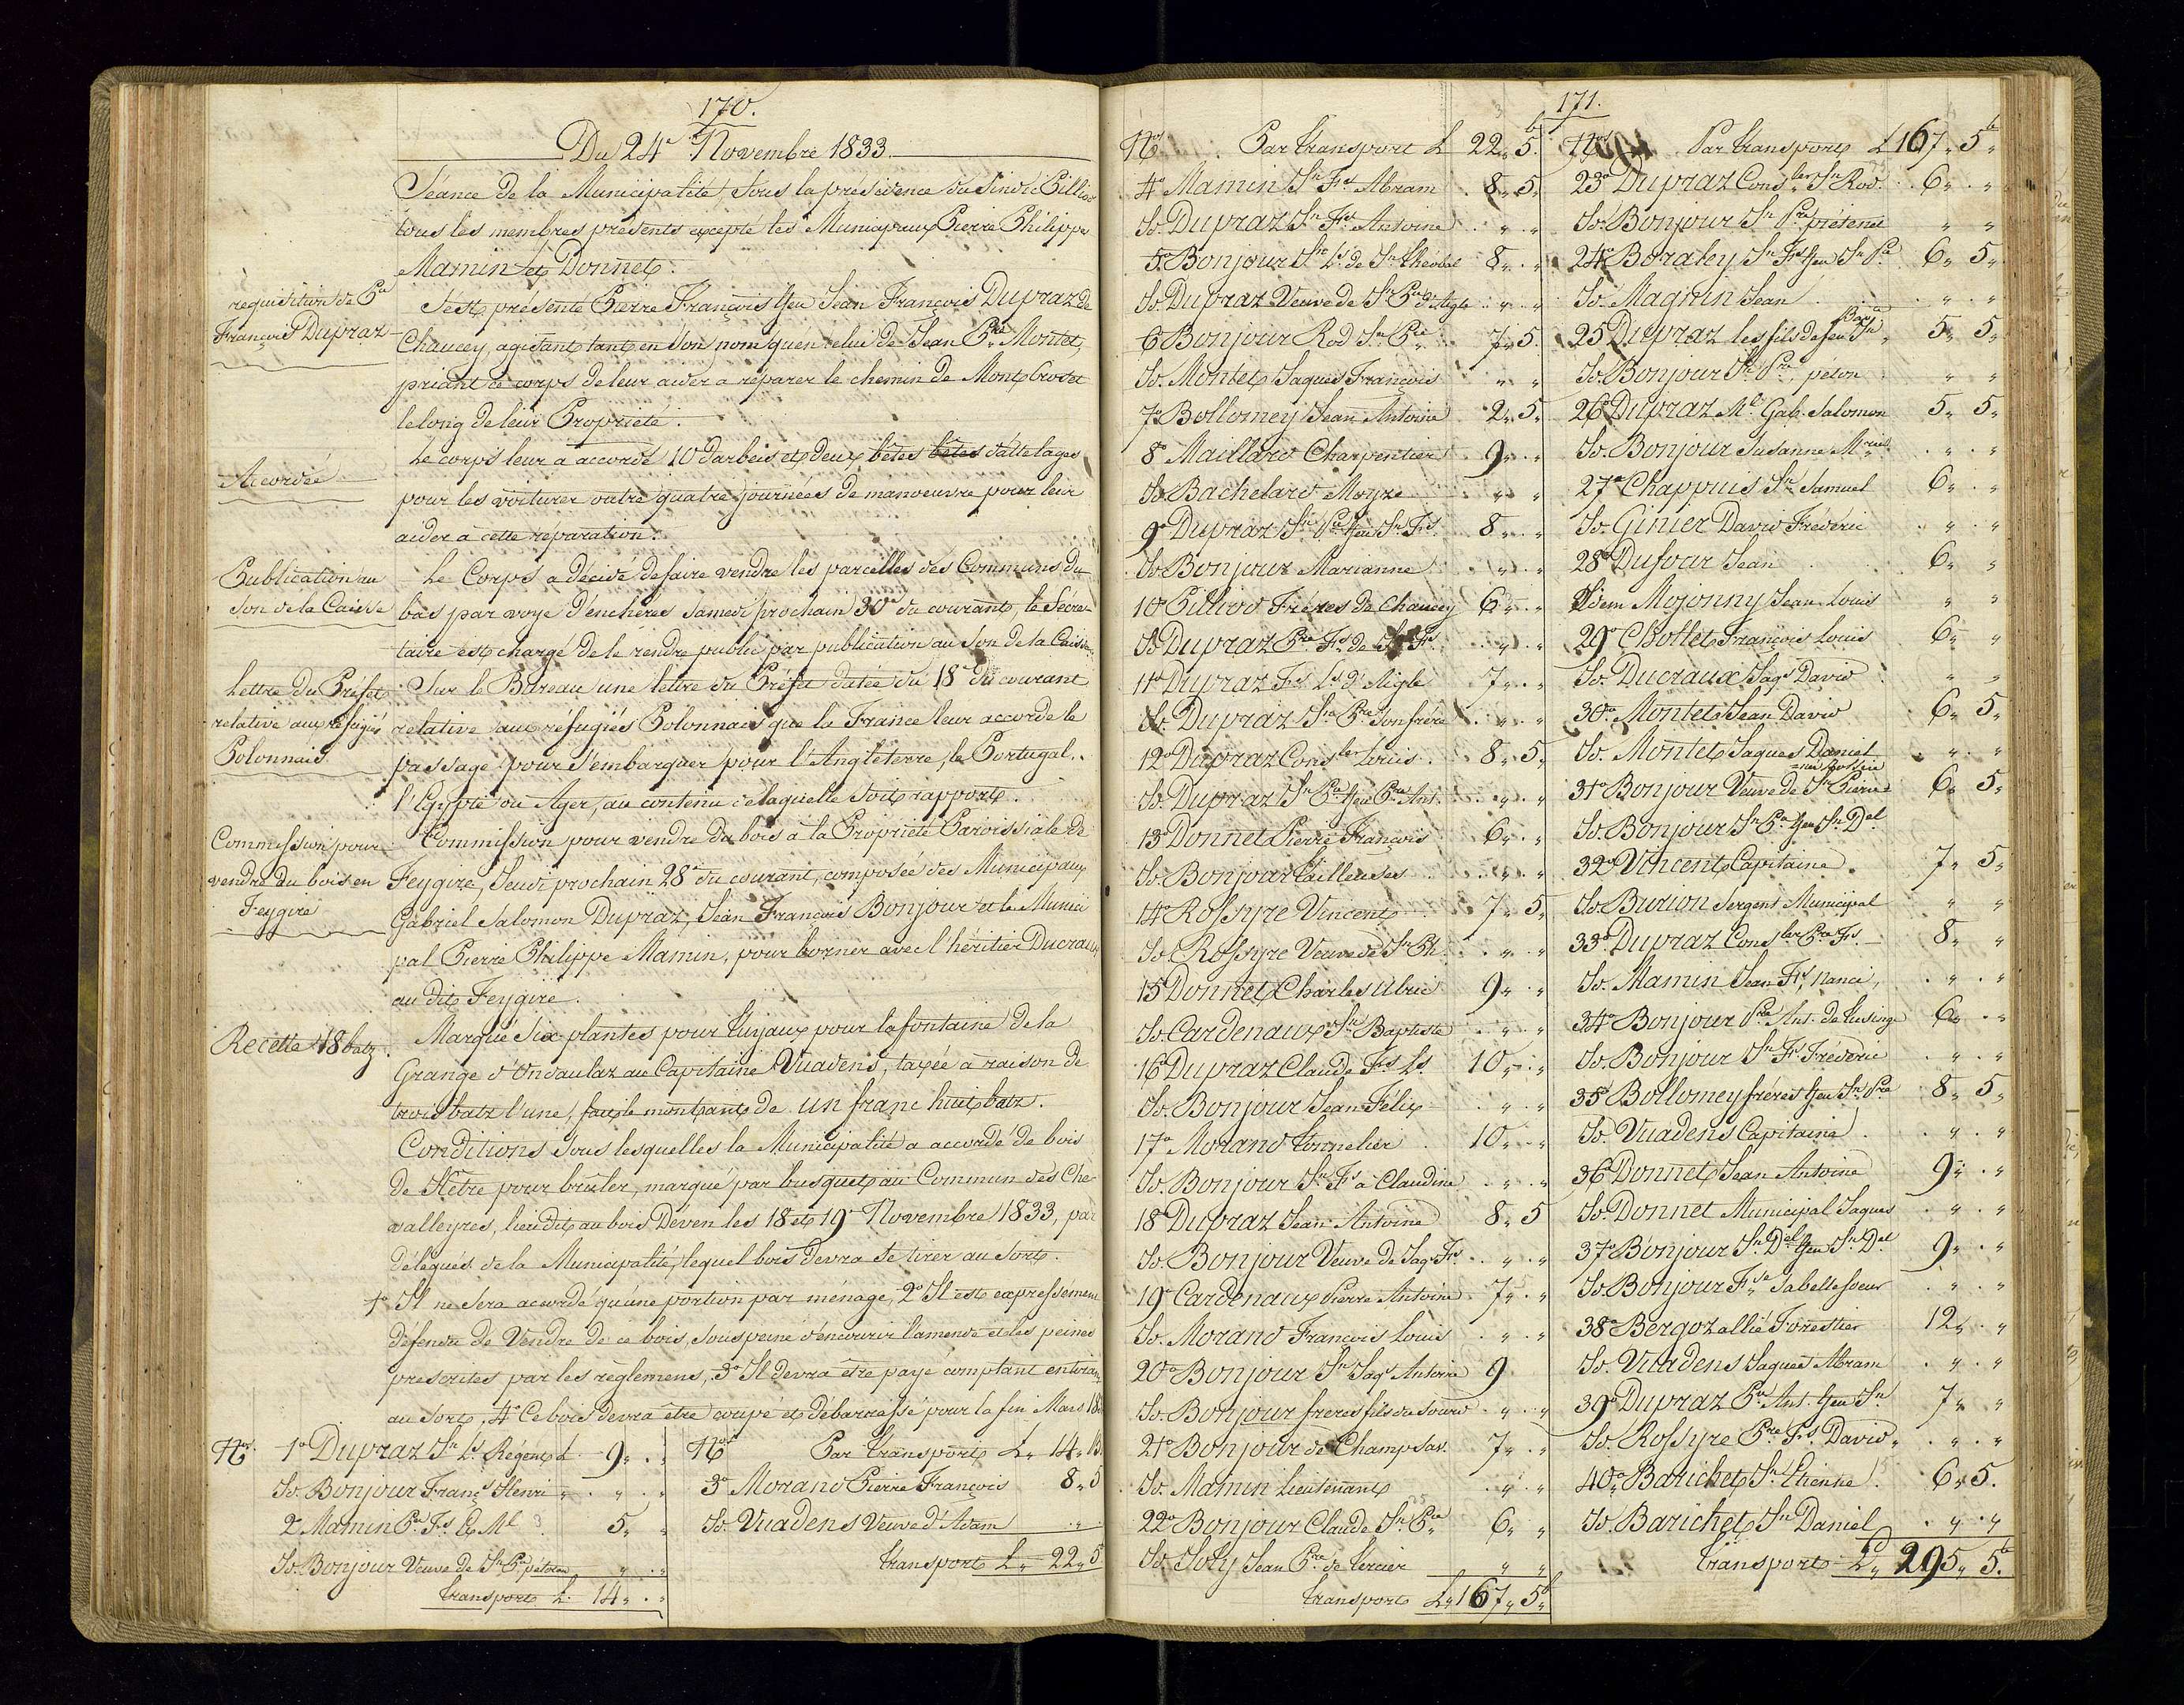 170.
Du 24e Novembre 1833
Séance de la Municipalité, sous la présidence du Sindic Pilliod
tous les membres présents excepté les Municipaux Pierre Philippe
Mamin et Donnet.
requisition de Pre
François Dupraz
S'est présenté Pierre François feu Jean François Dupraz de
Chaucey, agissant tant en son nom qu'en celui de Jean Pre Montet,
priant ce corps de leur aider a réparer le chemin de Mont Crovet
le long de leur Propriété.
Accordée
Le corps leur a accordé 10 darbeis et deux bêtes bêtes d'attelages
pour les voiturer outre quatre journées de manoeuvre pour leur
aider à cette réparation.
Publication au
son de la Caisse
Le Corps a décidé de faire vendre les parcelles des Communs du
bas par voye d'enchères samedi prochain 30e du courant, le Sécre-
taire est chargé de le rendre public par publication au son de la Caisse
Lettre du Préfet
relative aux réfugiés
Polonnais
Sur le Bureau une lettre du Préfet datée du 18e du courant
relative aux réfugiés Polonnais que la France leur accorde le
passage pour s'embarquer pour l'Angleterre, le Portugal,
l'Egypte ou Ager, au contenu de laquelle soit rapport.
Commission pour
vendre du bois en
Feygire
Commission pour vendre du bois à la Propriété Paroissiale de
Feygire, Jeudi prochain 28e du courant, composée des Municipaux
Gabriel Salomon Dupraz, Jean François Bonjour et le Munici
pal Pierre Philippe Mamin, pour borner avec l'héritier Ducraux
au dit Feygire.
Recette 18 batz.
Marqué Six plantes pour tuyaux pour la fontaine de la
Grange d'Ondaulaz au Capitaine Vuadens, taxée à raison de
trois batz l'une, fait le montant de un franc huit batz.
Conditions sous lesquelles la Municipalité a accordé de bois
de Hêtre pour brûler, marqué par busquet au Commun des Che
valleyres, lieu dit au bois Déven les 18 et 19e Novembre 1833, par
délégués de la Municipalité, lequel bois devra se tirer au sort.
1o Il ne sera accordé qu'une portion par ménage, 2o Il est expressément
défendu de Vendre de ce bois, sous peine d'encourir l'amende et les peines
prescrites par les règlemens, 3o Il devra être payé comptant en tirant
au sort, 4o Ce bois devra être coupé et débarrassé pour la fin Mars 18
Nos 1o Dupraz Jn Ls Régent L 9 " . "
Id. Bonjour Franç Henri " . " . "
2 Mamin Pre Fs E Ml 5 " "
Id. Bonjour Veuve de Jn Pre péton " . "
transport L. 14 " . "
Nos Par transport L " 14 "
3o Morand Pierre François 8 " 5
Id. Vuadens Veuve d'Adam . " .
transport L " 22 " 5
171.
Nos Par transport L 22 " 5 b
4o Mamin Jn Fs Abram 8 " 5
Id. Dupraz Jn Fs Antoine " "
5 Bonjour Jn Ls de Jn Theobal 8 " . "
Id. Dupraz Veuve de Jn Pre d'Aigle " . "
6 Bonjour Rod Jn Pre 7 " 5
Id. Montet Jaques François " "
7o Bollomey Jean Antoine 2 " 5 "
8o Maillard Charpentier 9 " . "
Id. Bachelard Moyze " "
9o Dupraz Jn Pre feu Jn Fs 8 " . "
Id. Bonjour Marianne " . "
10 Pilliod Frères de Chaucey 6 " . "
Id. Dupraz Pre Fs de Jn Fs " . "
11o Dupraz Fs Ls d'Aigle 7 " . "
Id. Dupraz Jn Pre son frère " . "
12o Dupraz Conser Louis 8 " 5 "
Id. Dupraz Jn Pre feu Pre Ant. " . "
13o Donnet Pierre François 6 " . "
Id. Bonjour tailleuses . " . "
14o Rossyre Vincent 7 " 5 "
Id. Rossyre Veuve de Jn Ph. . " . "
15 Donnet Charles Ulric 9 " . "
Id. Cardenaux Jn Baptiste . " . "
16 Dupraz Claude Fs Ls 10 " . "
Id. Bonjour Jean Félix . " . "
17o Morand tonnelier 10 " . "
Id. Bonjour Jn Fs à Claudine . " . "
18 Dupraz Jean Antoine 8 " 5
Id. Bonjour Veuve de Jaq Fs . " . "
19 Cardenaux Pierre Antoine 7 " . "
Id. Morand François Louis . " . "
20o Bonjour Jn Jaqs Antoine 9
Id. Bonjour frères fils du sourd . " . "
21o Bonjour de Champsav. 7 " . "
Id. Mamin Lieutenant . " "
22o Bonjour Claude Jn Pre 6 " "
Id. Joly Jean Pre de tercier " "
transport L " 167 " 5 b
Nos Par transport L 167 " 5 b
23o Dupraz Conser Jn Rod. 6 " . "
Id. Bonjour Jn Pre piétend " "
24o Boraley Jn Fs feu Jn Pre 6 " 5 "
Id. Magnin Jean . " "
25 Dupraz les fils de feu Jn Bapte 5 " 5 "
Id. Bonjour Jn Pre péton " "
26o Dupraz Ml Gab. Salomon 5 " 5 "
Id. Bonjour Susanne Marie . " . "
27o Chappuis Jn Samuel 6 " . "
Id. Ginier David Fréderic . " . "
28o Dufour Jean 6 " "
Idem Mojonny Jean Louis " "
29o Chollet François Louis 6 " "
Id. Ducraux Jaqs David " "
30o Montet Jean David 6 " 5 "
Id. Montet Jaques Daniel . " . "
31o Bonjour Veuve de Jn Pierre 6 " 5 "
Id. Bonjour Jn Pre feu Jn Del
32o Vincent Capitaine 7 " 5 "
Id. Burion sergent Municipal " "
33o Dupraz Conser Pre Fs 8 " "
Id. Mamin Jean Fs, Nanci, . " . "
34o Bonjour Pre Ant. de Lusinge 6 " . "
Id. Bonjour Jn Fs Fréderic . " . "
35o Bollomey frères feu Jn Pre 8 " 5 "
Id. Vuadens Capitaine . " . "
36o Donnet Jean Antoine 9 " . "
Id. Donnet Municipal Jaques . " . "
37o Bonjour Jn Del feu Jn Del 9 " . "
Id. Bonjour Fse Isabelle soeur . " "
38o Bergoz allié Forestier 12 " . "
Id. Vuadens Jaques Abram . " . "
39o Dupraz Pre Ant. feu Jn 7 " "
Id. Rossyre Pre Fs David . " . "
40o Barichet Jn Etienne 6 " 5.
Id. Barichet Jn Daniel . " . "
transport L " 295 " 5 b